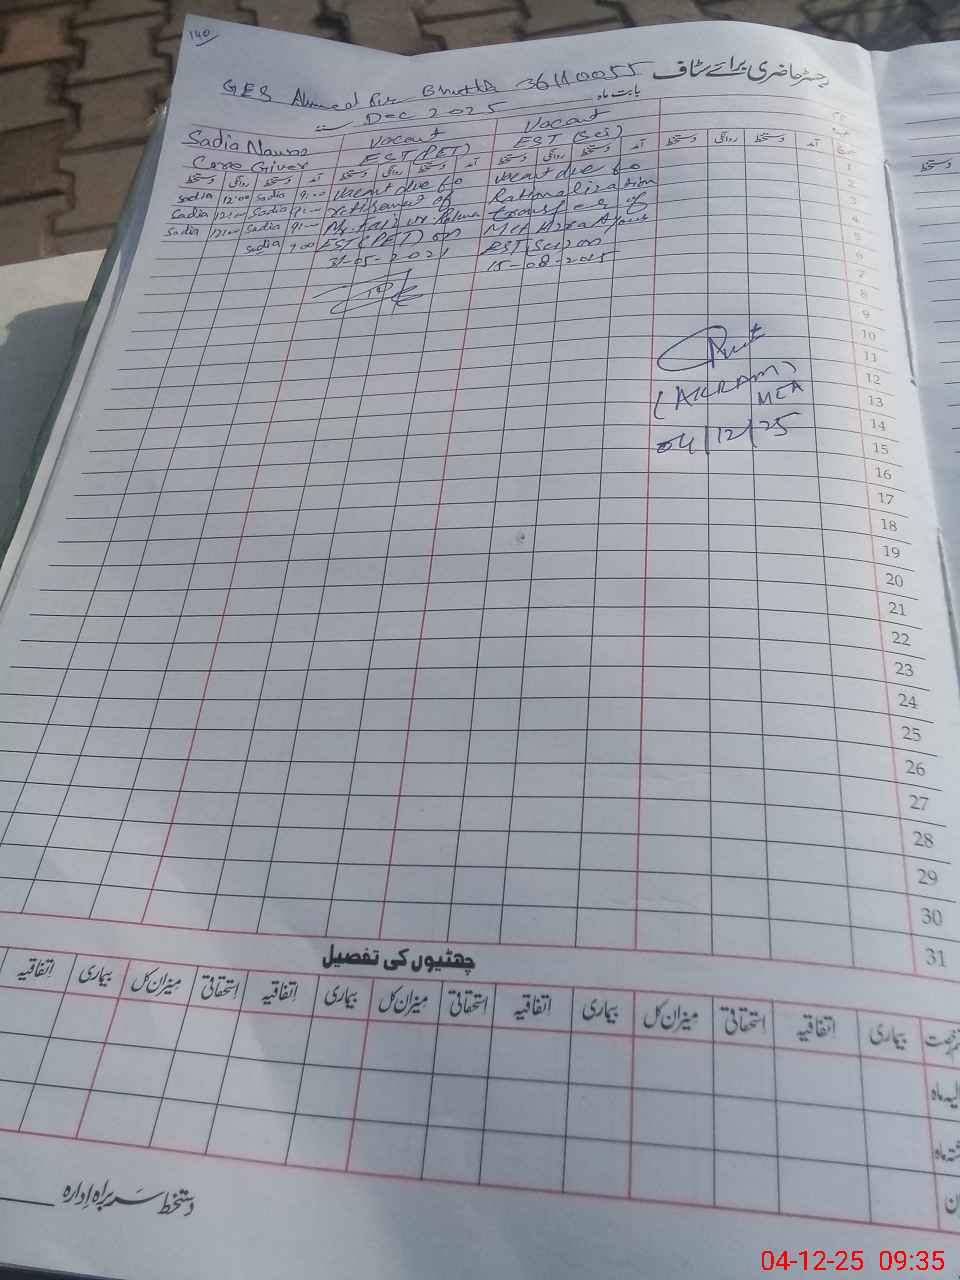 140
رجسٹر حاضری برائے سٹاف
GES Ahmed Pur Bhutta 36110055
بابت ماہ Dec 2025
Sadia Nawaz Vacant Vacant
Care Giver EST (PET) EST (Sci)
آمد دستخط روانگی دستخط آمد دستخط روانگی دستخط آمد دستخط روانگی دستخط آمد دستخط روانگی دستخط
1 Vacant due to Vacant due to 9:00 Sadia 12:00 Sadia
2 Rationalization retirement of 9:00 Sadia 12:00 Sadia
3 transfer of Mr. 9:00 Sadia 12:00 Sadia
4 EST (PET) on 9:00 Sadia
5 EST (Sci) on 31-05-2021
6 15-08-2025
7
8
9
10
11
12 (AKRAM)
13 MEA
14 04/12/25
15
16
17
18
19
20
21
22
23
24
25
26
27
28
29
30
31
چھٹیوں کی تفصیل
بیماری اتفاقیہ استحقاقی میزان کل بیماری اتفاقیہ استحقاقی میزان کل بیماری اتفاقیہ استحقاقی میزان کل بیماری اتفاقیہ
دستخط سربراہ ادارہ
04-12-25 09:35